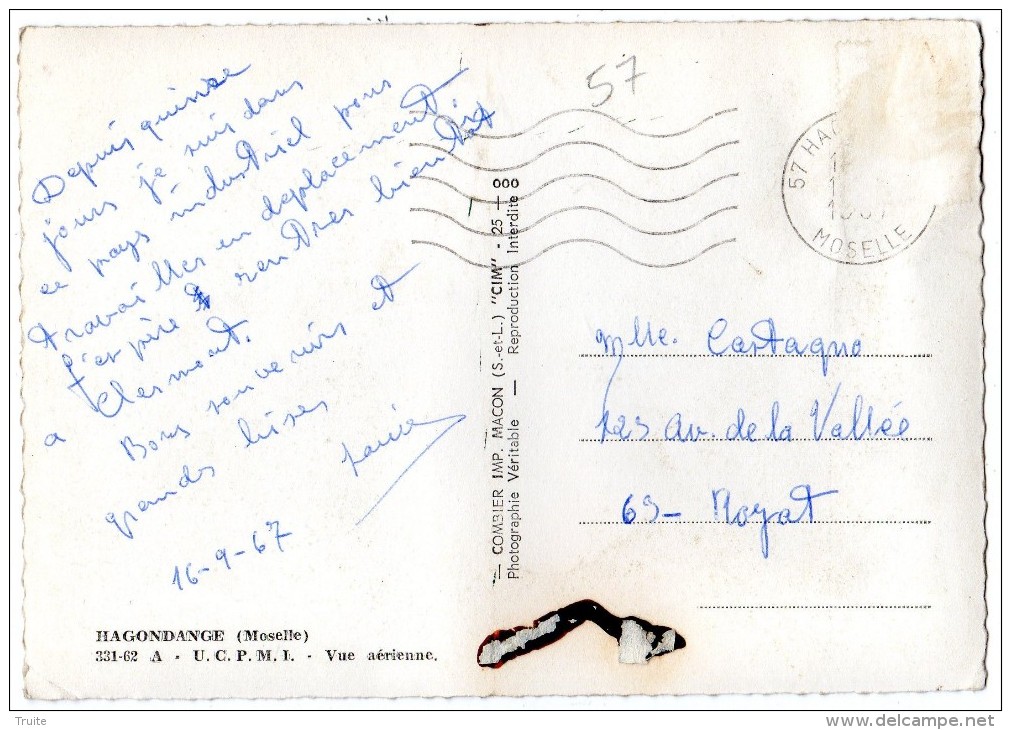 Depuis quinze
jours je suis dans
ce pays industriel pour
travailler en déplacement
j'espère rentrer bientôt
a Clermont.
Bons souvenirs et
grandes bises
16-9-67
HAGONDANGE (Moselle)
331-62 A - U. C. P. M. I. - Vue aérienne.
— COMBIER IMP. MACON (S.-et-L.) "CIM" - 25 — 000
Photographie Véritable — Reproduction Interdite
57
57 HA
MOSELLE
Mlle. Castagno
123 av. de la Vallée
63- Royat
Truite
delcampe.net